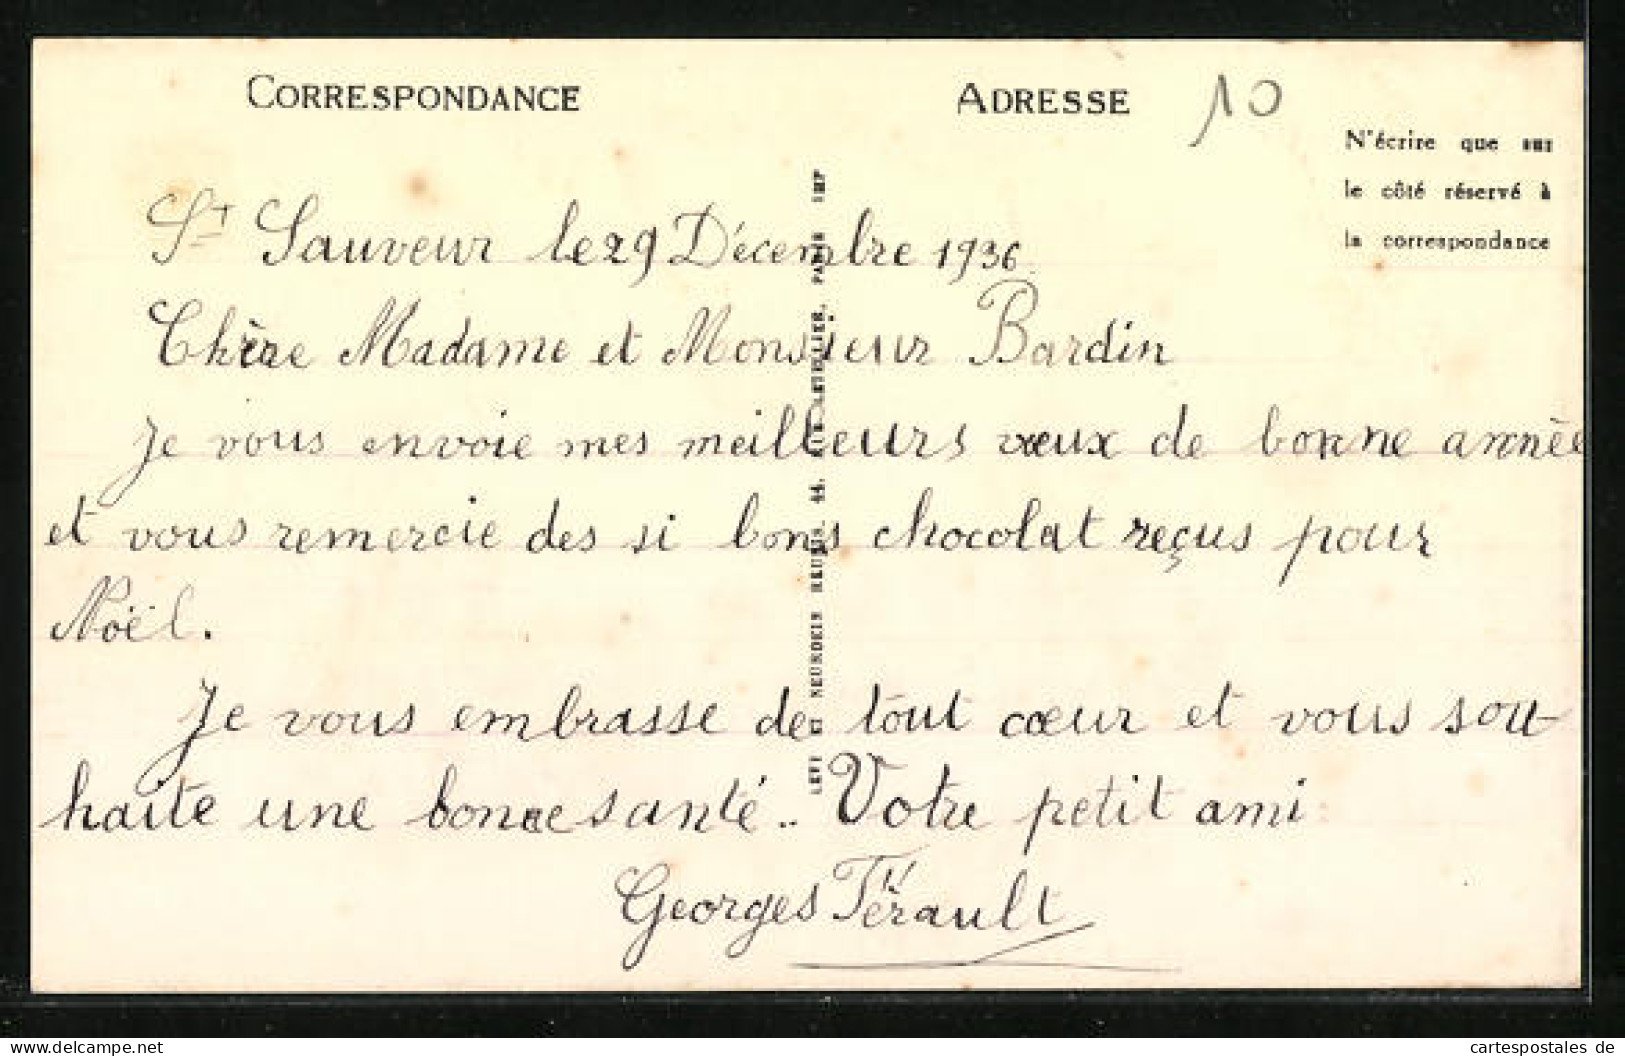 CORRESPONDANCE
ADRESSE
10
N'écrire que sur
le côté réservé à
la correspondance
St Sauveur le 29 Décembre 1936.
Chère Madame et Monsieur Bardin
Je vous envoie mes meilleurs vœux de bonne année
et vous remercie des si bons chocolat reçus pour
Noël.
Je vous embrasse de tout cœur et vous sou-
haite une bonne santé.. Votre petit ami
Georges Férault
LEVY ET NEURDEIN REUNIS, 44, RUE LETELLIER, PARIS IMP
www.delcampe.net
cartespostales de